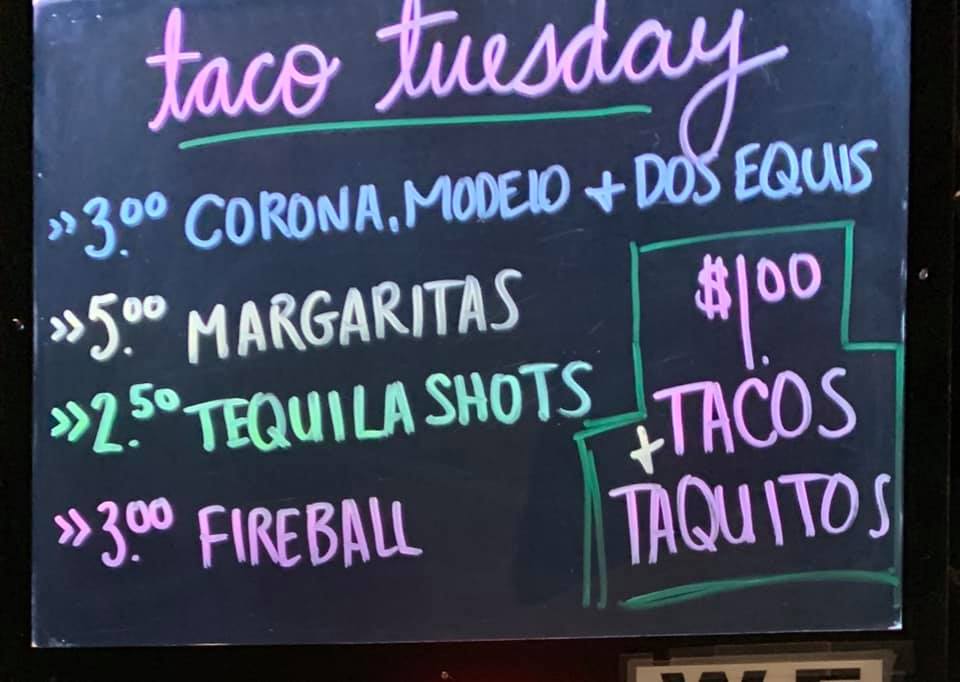 taco tuesday
>>3.00 CORONA, MODELO + DOS EQUIS
>>5.00 MARGARITAS
>>2.50 TEQUILA SHOTS
>>3.00 FIREBALL
$1.00
TACOS
+
TAQUITOS